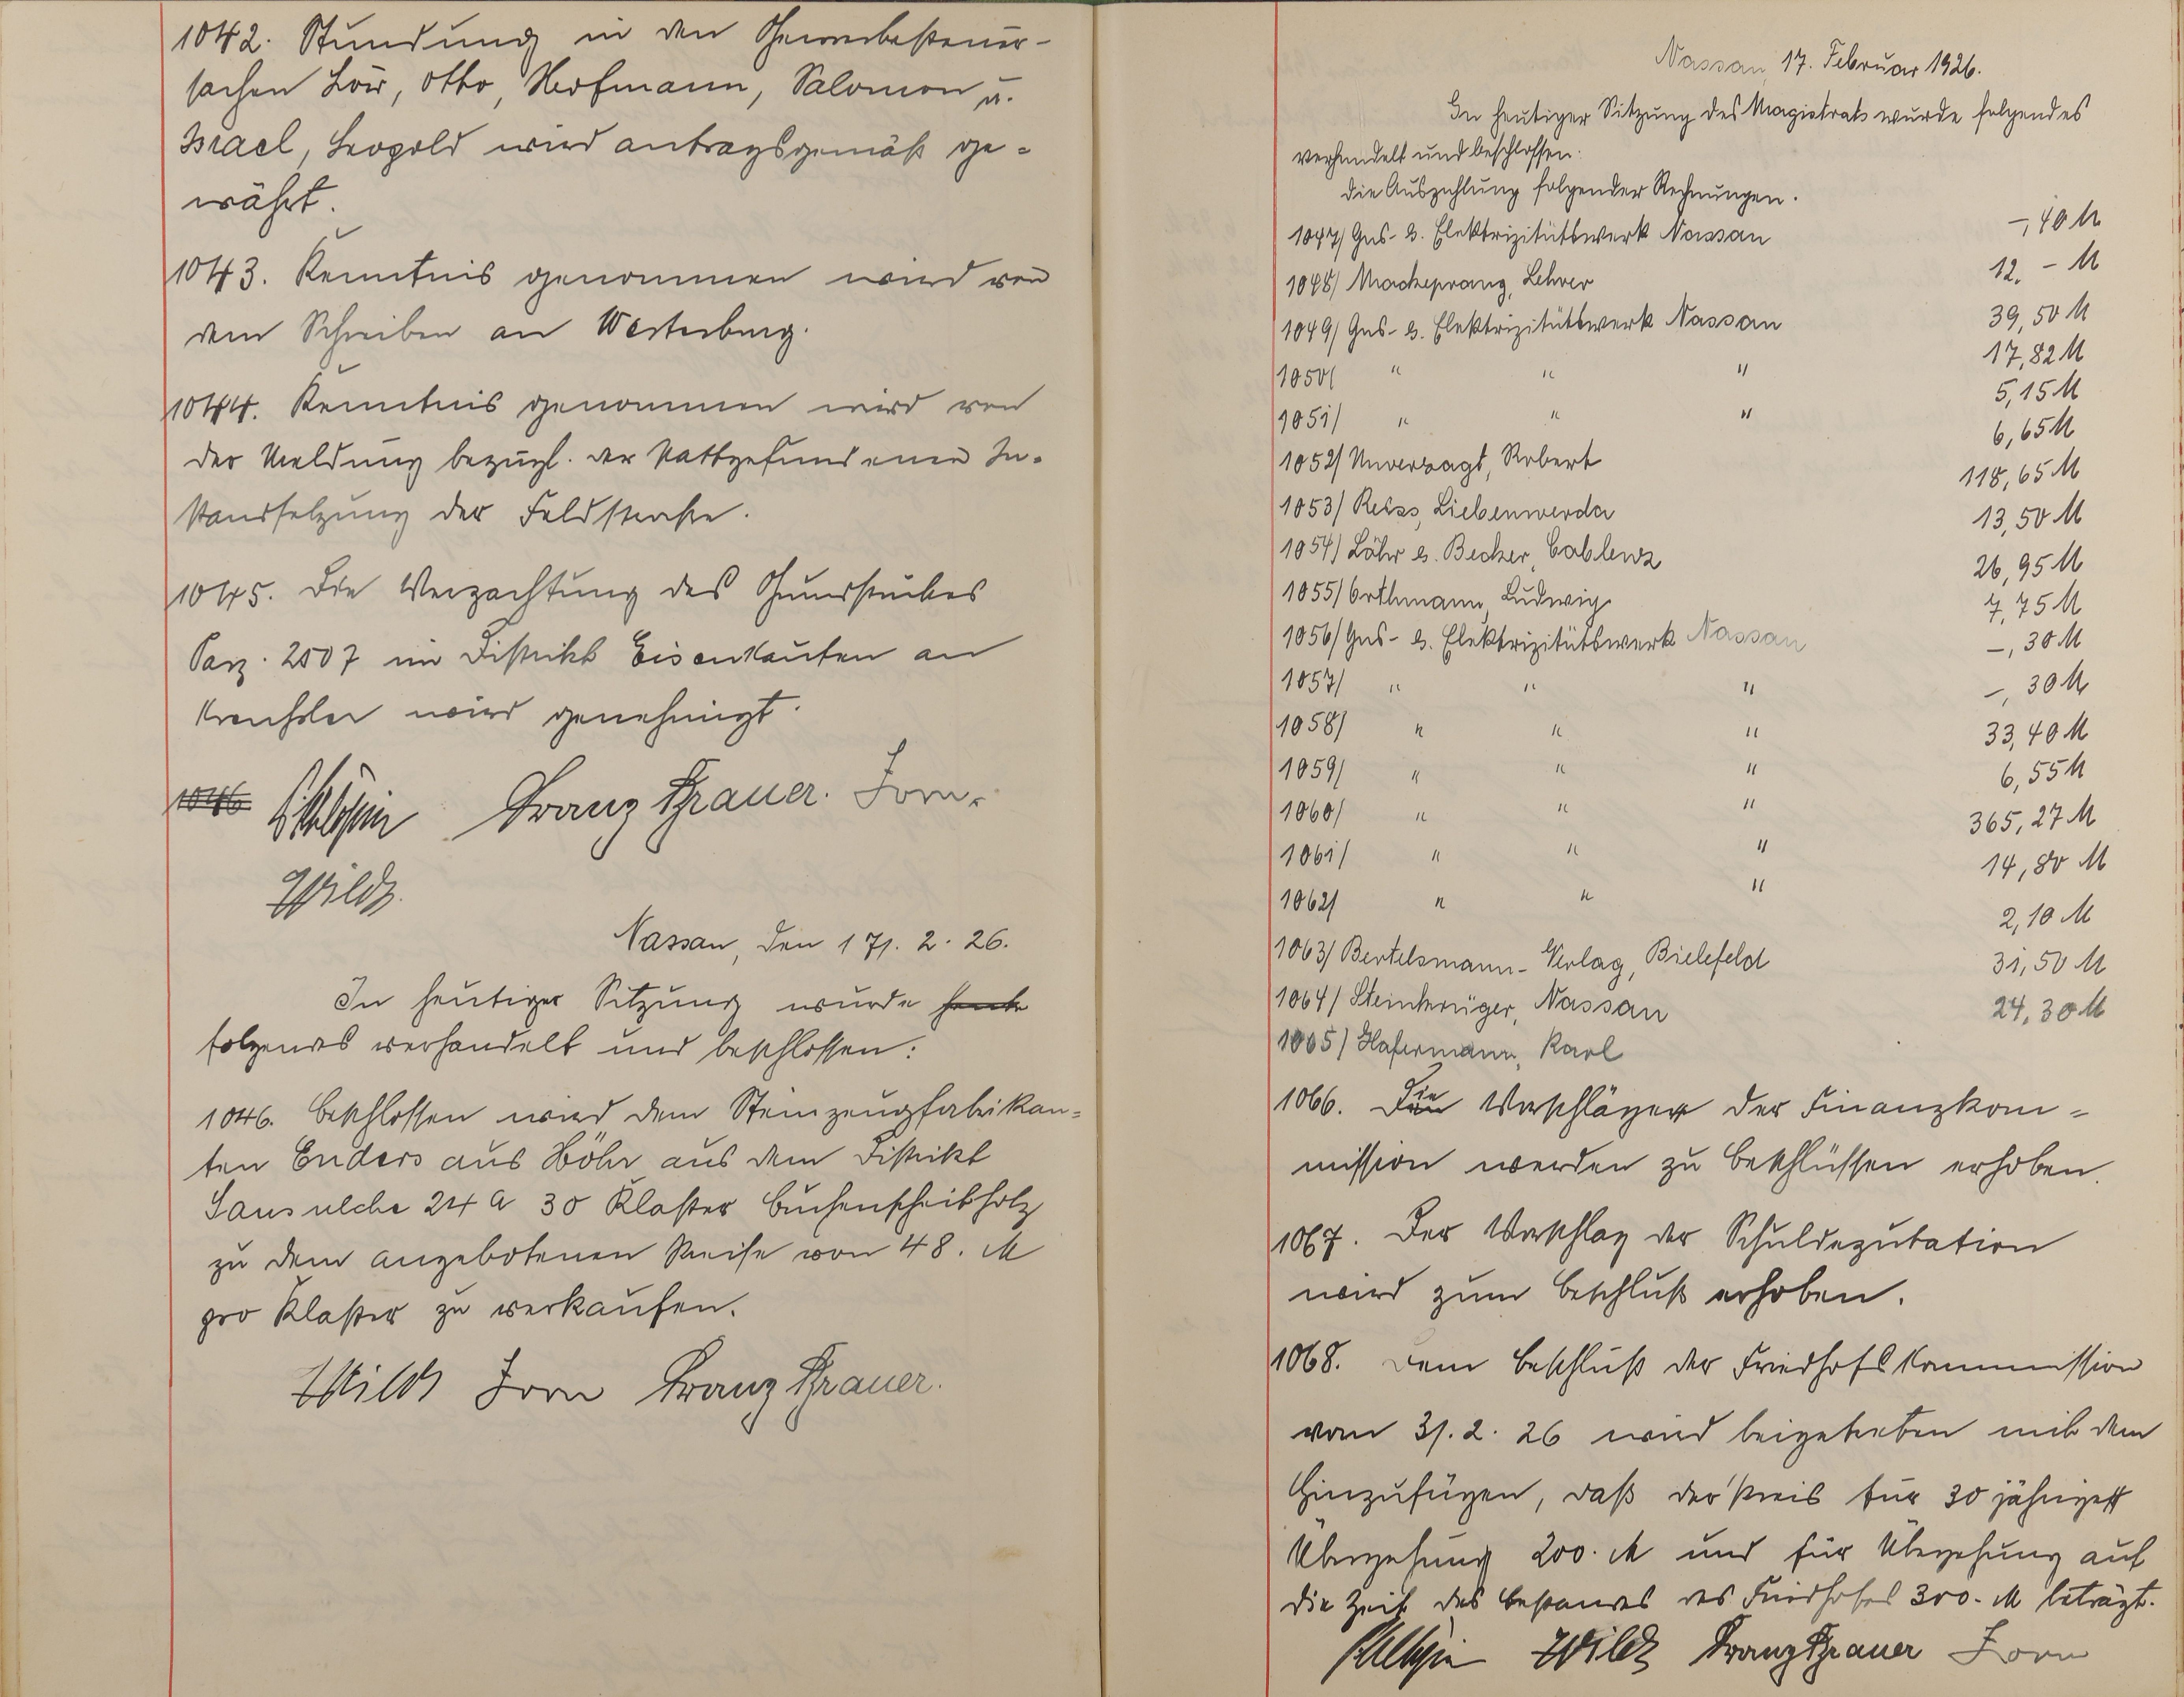 1042. Stundung in den Gewerbesteuer-
sachen Löw, Otto, Hofmann, Salomon u.
Israel, Leopold wird antragsgemäß ge-
währt.
1043. Kenntnis genommen wird von
dem Schreiben an Westerburg.
1044. Kenntnis genommen wird von
der Meldung bezügl. der stattgefundenen In-
standsetzung der Feldstraße.
1045. Die Verpachtung des Grundstückes
Parz. 2507 im Distrikt Eisenkauten an
wird genehmigt.
1046
Franz Grauer. Zorn.
Wild
Nassau, den 17. 2. 26.
In heutiger Sitzung wurde heute
folgendes verhandelt und beschlossen:
1046. Beschlossen wird dem Steinzeugfabrikan-
ten Enders aus Höhr aus dem Distrikt
24 a 30 Klafter Buchenscheitholz
zu dem angebotenen Preise von 48. M
pro Klafter zu verkaufen.
Wild Zorn Franz Grauer.
Nassau 17. Februar 1926.
In heutiger Sitzung des Magistrats wurde folgendes
verhandelt und beschlossen:
die Auszahlung folgender Rechnungen.
1047/ Gas- & Elektrizitätswerk Nassau -,40 M
1048/ Mackeprang, Lehrer 12,- M
1049/ Gas- & Elektrizitätswerk Nassau 39,50 M
1050/ " " " 17,82 M
1051/ " " " 5,15 M
1052/ Unverzagt, Robert 6,65 M
1053/ Reiss, Liebenwerda 118,65 M
1054/ Löhr & Becker, Coblenz 13,50 M
1055/ Orthmann, Ludwig 26,95 M
1056/ Gas- & Elektrizitätswerk Nassau 7,75 M
1057/ " " " -,30 M
1058/ " " " -,30 M
1059/ " " " 33,40 M
1060/ " " " 6,55 M
1061/ " " " 365,27 M
1062/ " " " 14,80 M
1063/ Bertelsmann-Verlag, Bielefeld 2,10 M
1064/ Steinkrüger, Nassau 31,50 M
1065/ Hafermann, Karl 24,30 M
1066. Die Vorschläge der Finanzkom-
mission werden zu Beschlüssen erhoben.
1067. Der Vorschlag der Schuldeputation
wird zum Beschluß erhoben.
1068. Dem Beschluß der Friedhofskommission
vom 3/. 2. 26 wird beigetreten mit dem
Hinzufügen, daß der Preis für 30 jährige
Übergehung 200. M und für Übergehung auf
die Zeit des Bestandes des Friedhofes 300. M beträgt.
Wild Franz Grauer Zorn